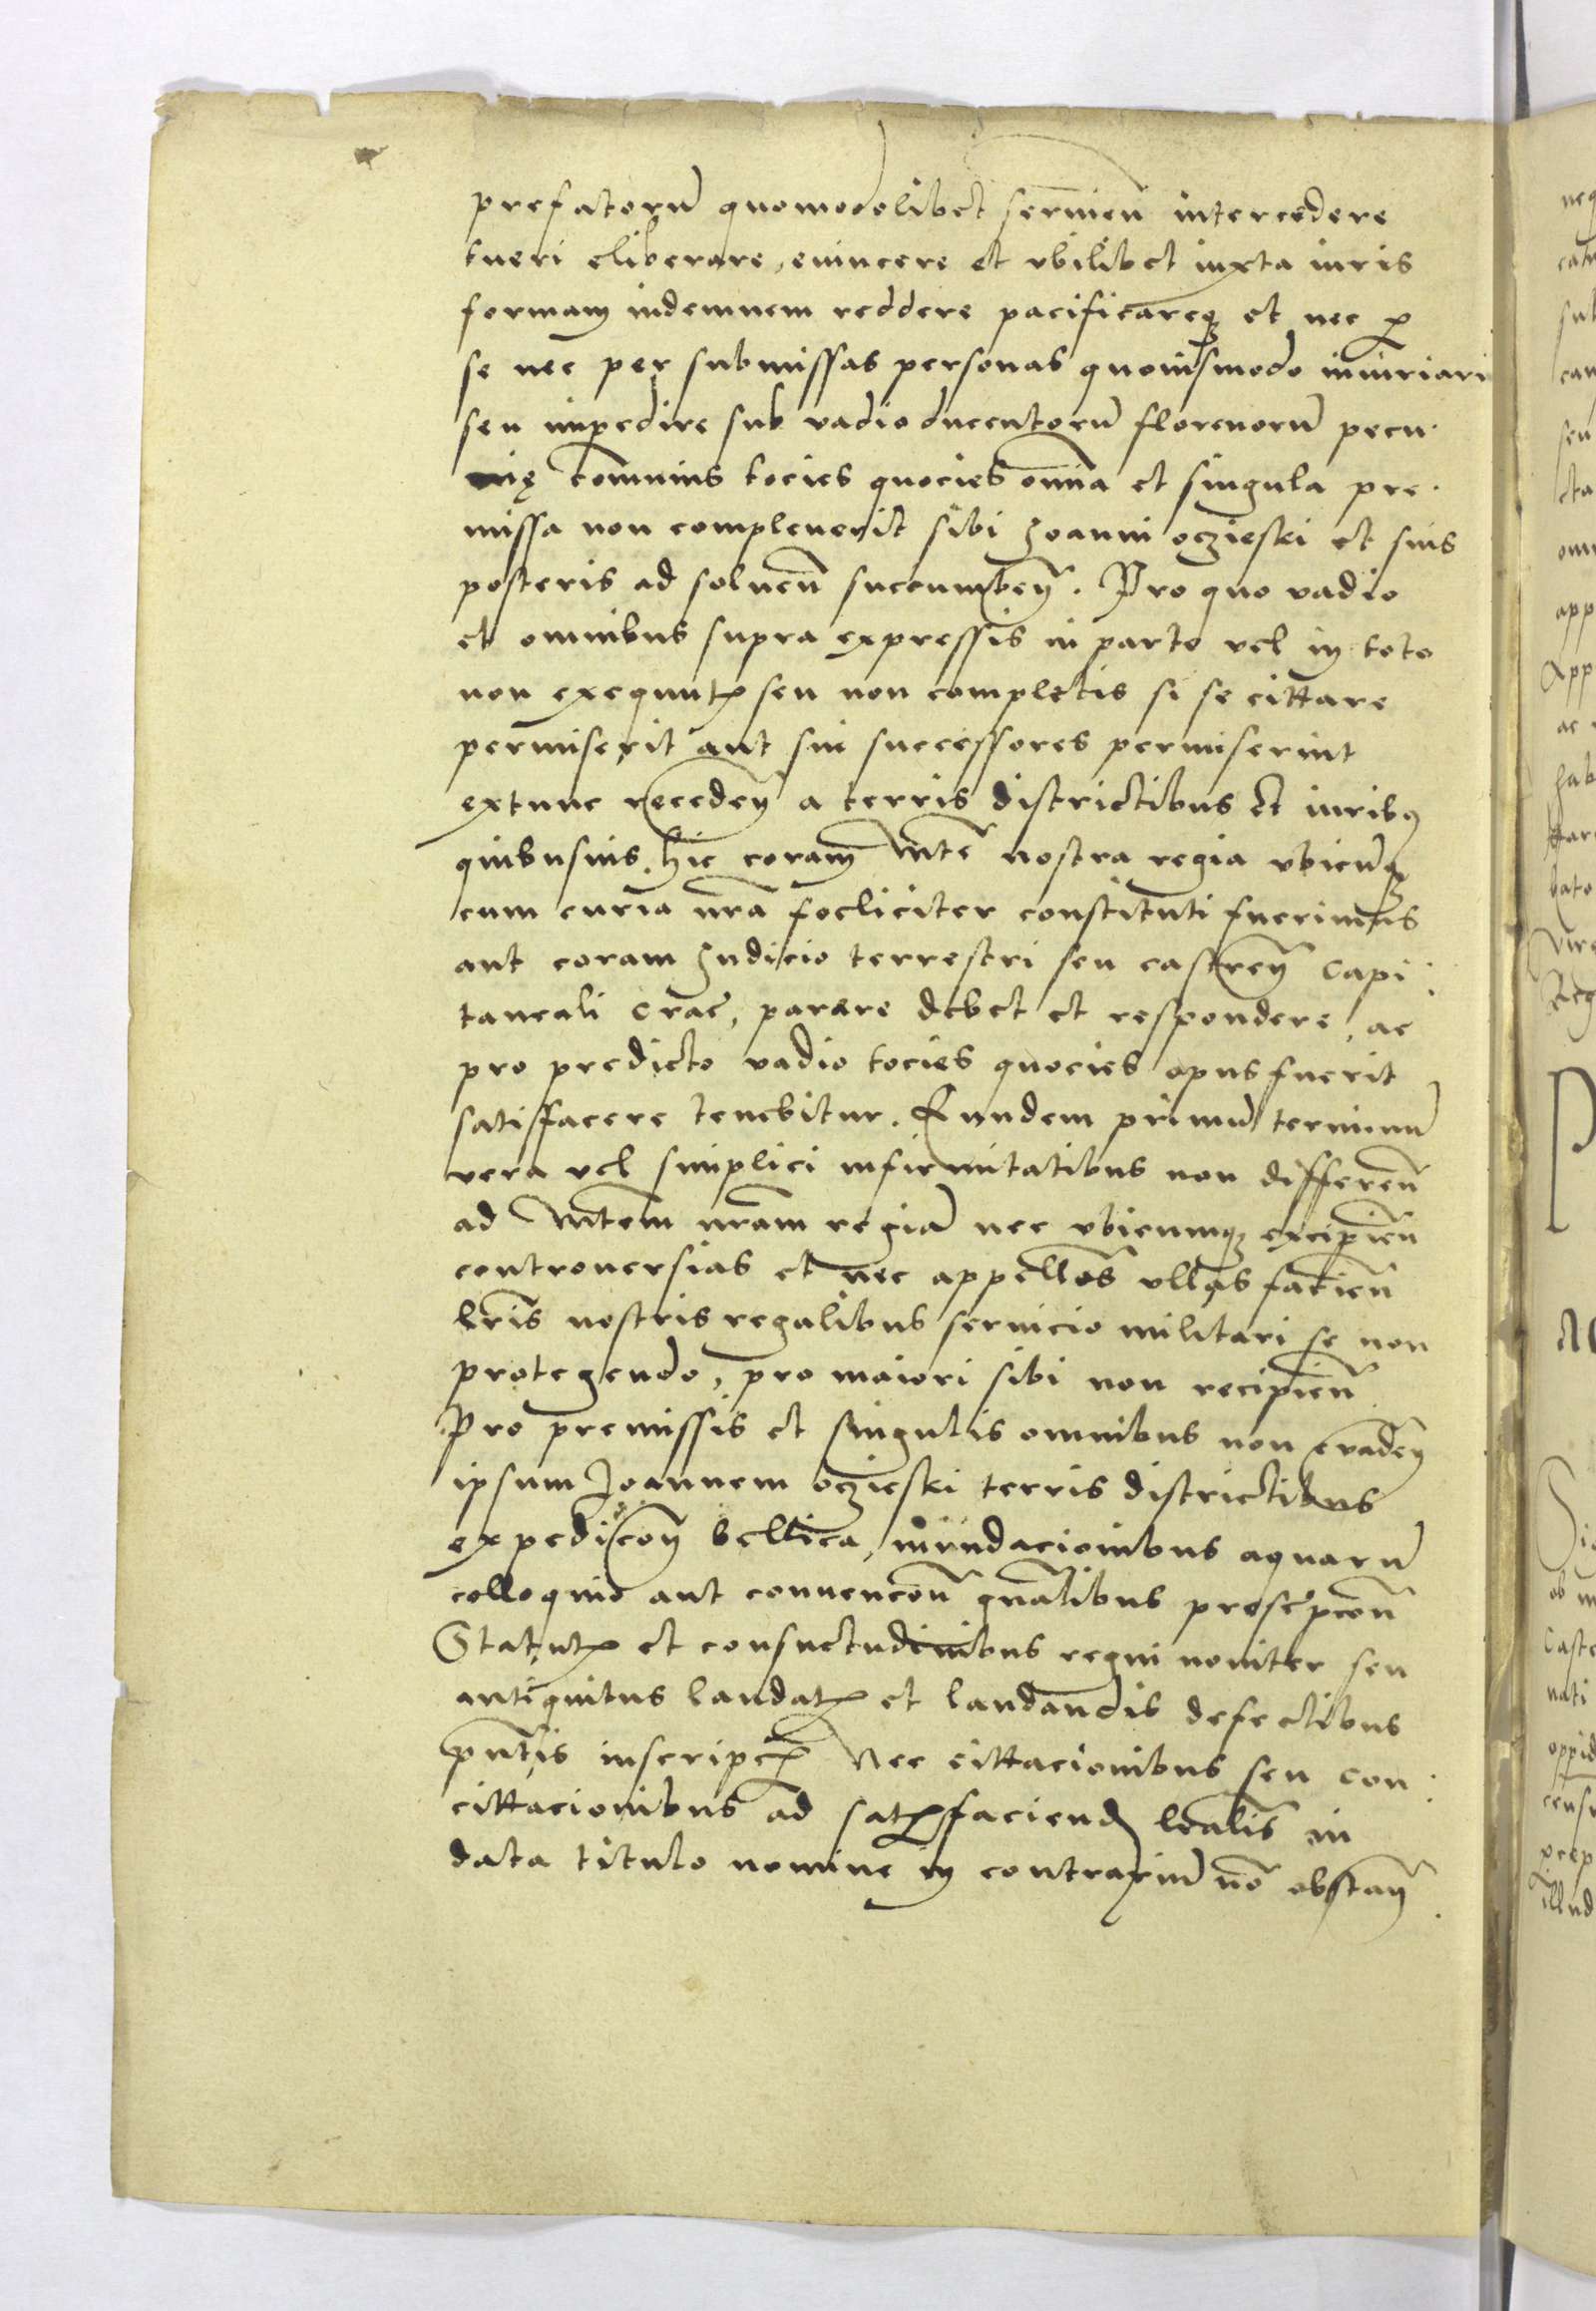 prefatorũ quomodolibet serviẽn intercedere
tueri eliberare, evincere et ubilibet iuxta iuris
formam indemnem reddere pacificareqꝫ et nec ꝑ
se nec per submissas personas quovismodo iniuriari
seu impedire sub vadio ducentorũ florenorũ pecu
nię cõmunis tocies quocies om̃ia et singula pre
missa non compleverit sibi Joanni oczieski et suis
posteris ad solveñ succumbeñ. Pro quo vadio
et omnibus supra expressis in parte vel in toto
non exequutꝭ seu non completis si se cittare
permiserit aut sui successores permiserint
extunc recedeñ a terris districtibus et iuribꝫ
quibusuis. hic coram Mte nostra regia ubicũqꝫ
cum curia nr̃a foeliciter constituti fuerimus
aut coram Judicio terrestri seu castreñ Capi
taneali Crac̃, parere debet et respondere, ac
pro predicto vadio tocies quocies opus fuerit
satisfacere tenebitur. Eundem primũ terminũ
vera vel simplici infirmitatibus non differeñ
ad Mtem nr̃am regiã nec ubicumqꝫ excipieñ
controversias et nec appellões ullas facieñ
lr̃is nostris regalibus servicio militari se non
protegendo, pro maiori sibi non recipieñ
Pro premissis et singulis omnibus non evadeñ
ipsum Joannem oczieski terris districtibus
expedicoñ bellica, inundacionibus aquarũ
colloquio aut convencoñ gñalibus prescripcoñ
Statutꝭ et consuetudinibus regni noviter seu
antiquitus laudatꝭ et laudandis defectibus
pñtis inscripcꝭ Nec cittacionibus seu con
cittacionibus ad satꝭfaciend lr̃alis in
data titulo nomine in contrariũ nõ obstañ